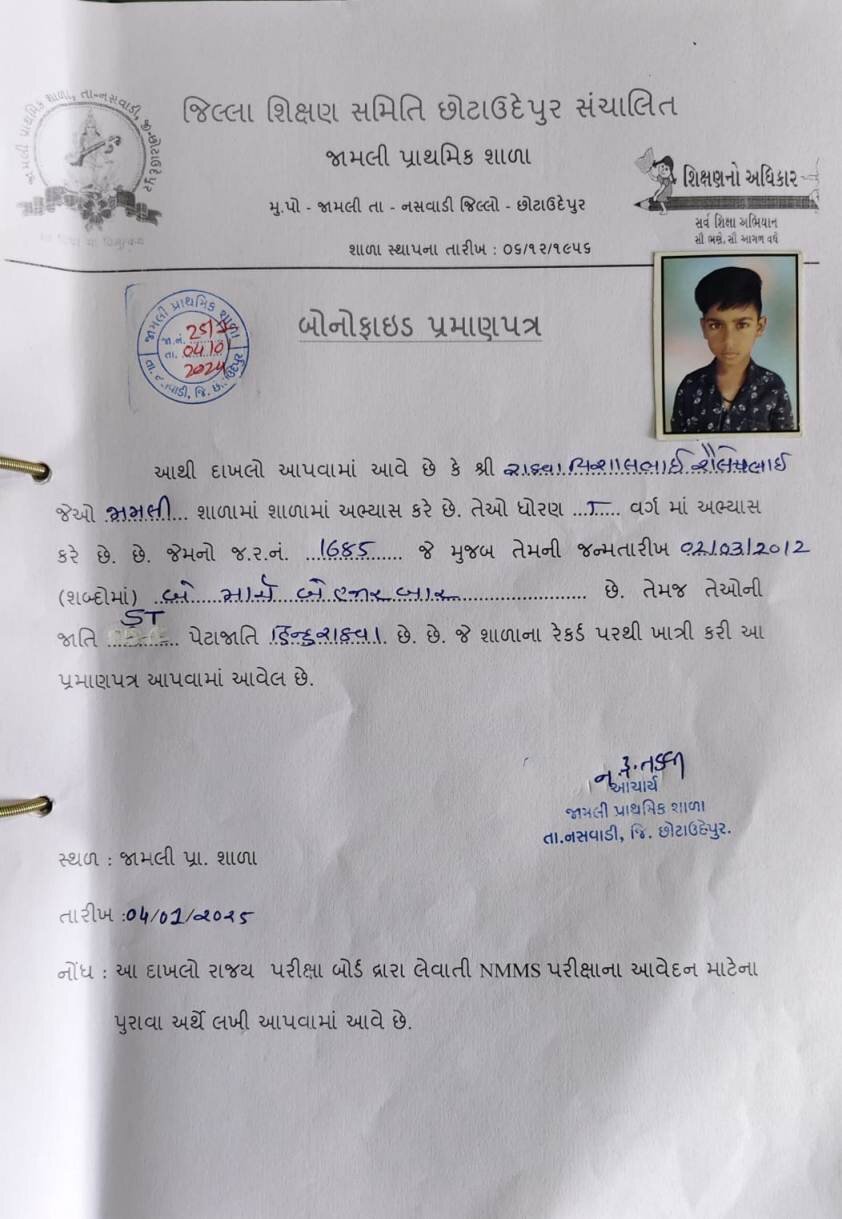 જામલી પ્રાથમિક શાળા, તા-નસવાડી, જી-છોટાઉદેપુર
જિલ્લા શિક્ષણ સમિતિ છોટાઉદેપુર સંચાલિત
જામલી પ્રાથમિક શાળા
મુ.પો - જામલી તા - નસવાડી જિલ્લો - છોટાઉદેપુર
શાળા સ્થાપના તારીખ : ૦૬/૧૨/૧૯૫૬
શિક્ષણનો અધિકાર
સર્વ શિક્ષા અભિયાન
સૌ ભણે, સૌ આગળ વધે
જામલી પ્રાથમિક શાળા
જા.નં.
તા. 04/10
2024
બોનોફાઇડ પ્રમાણપત્ર
આથી દાખલો આપવામાં આવે છે કે શ્રી રાઠવા વિશાલભાઈ શૈલેષભાઈ
જેઓ જામલી... શાળામાં શાળામાં અભ્યાસ કરે છે. તેઓ ધોરણ ....... વર્ગ માં અભ્યાસ
કરે છે. છે. જેમનો જ.ર.નં. ...1685...... જે મુજબ તેમની જન્મતારીખ 02/03/2012
(શબ્દોમાં) ..બે....માર્ચ...બે હજાર બાર.................. છે. તેમજ તેઓની
જાતિ ST પેટાજાતિ હિન્દુરાઠવા. છે. છે. જે શાળાના રેકર્ડ પરથી ખાત્રી કરી આ
પ્રમાણપત્ર આપવામાં આવેલ છે.
આચાર્ય
જામલી પ્રાથમિક શાળા
તા.નસવાડી, જિ. છોટાઉદેપુર.
સ્થળ : જામલી પ્રા. શાળા
તારીખ :04/01/2025
નોંધ : આ દાખલો રાજય પરીક્ષા બોર્ડ દ્વારા લેવાતી NMMS પરીક્ષાના આવેદન માટેના
પુરાવા અર્થે લખી આપવામાં આવે છે.